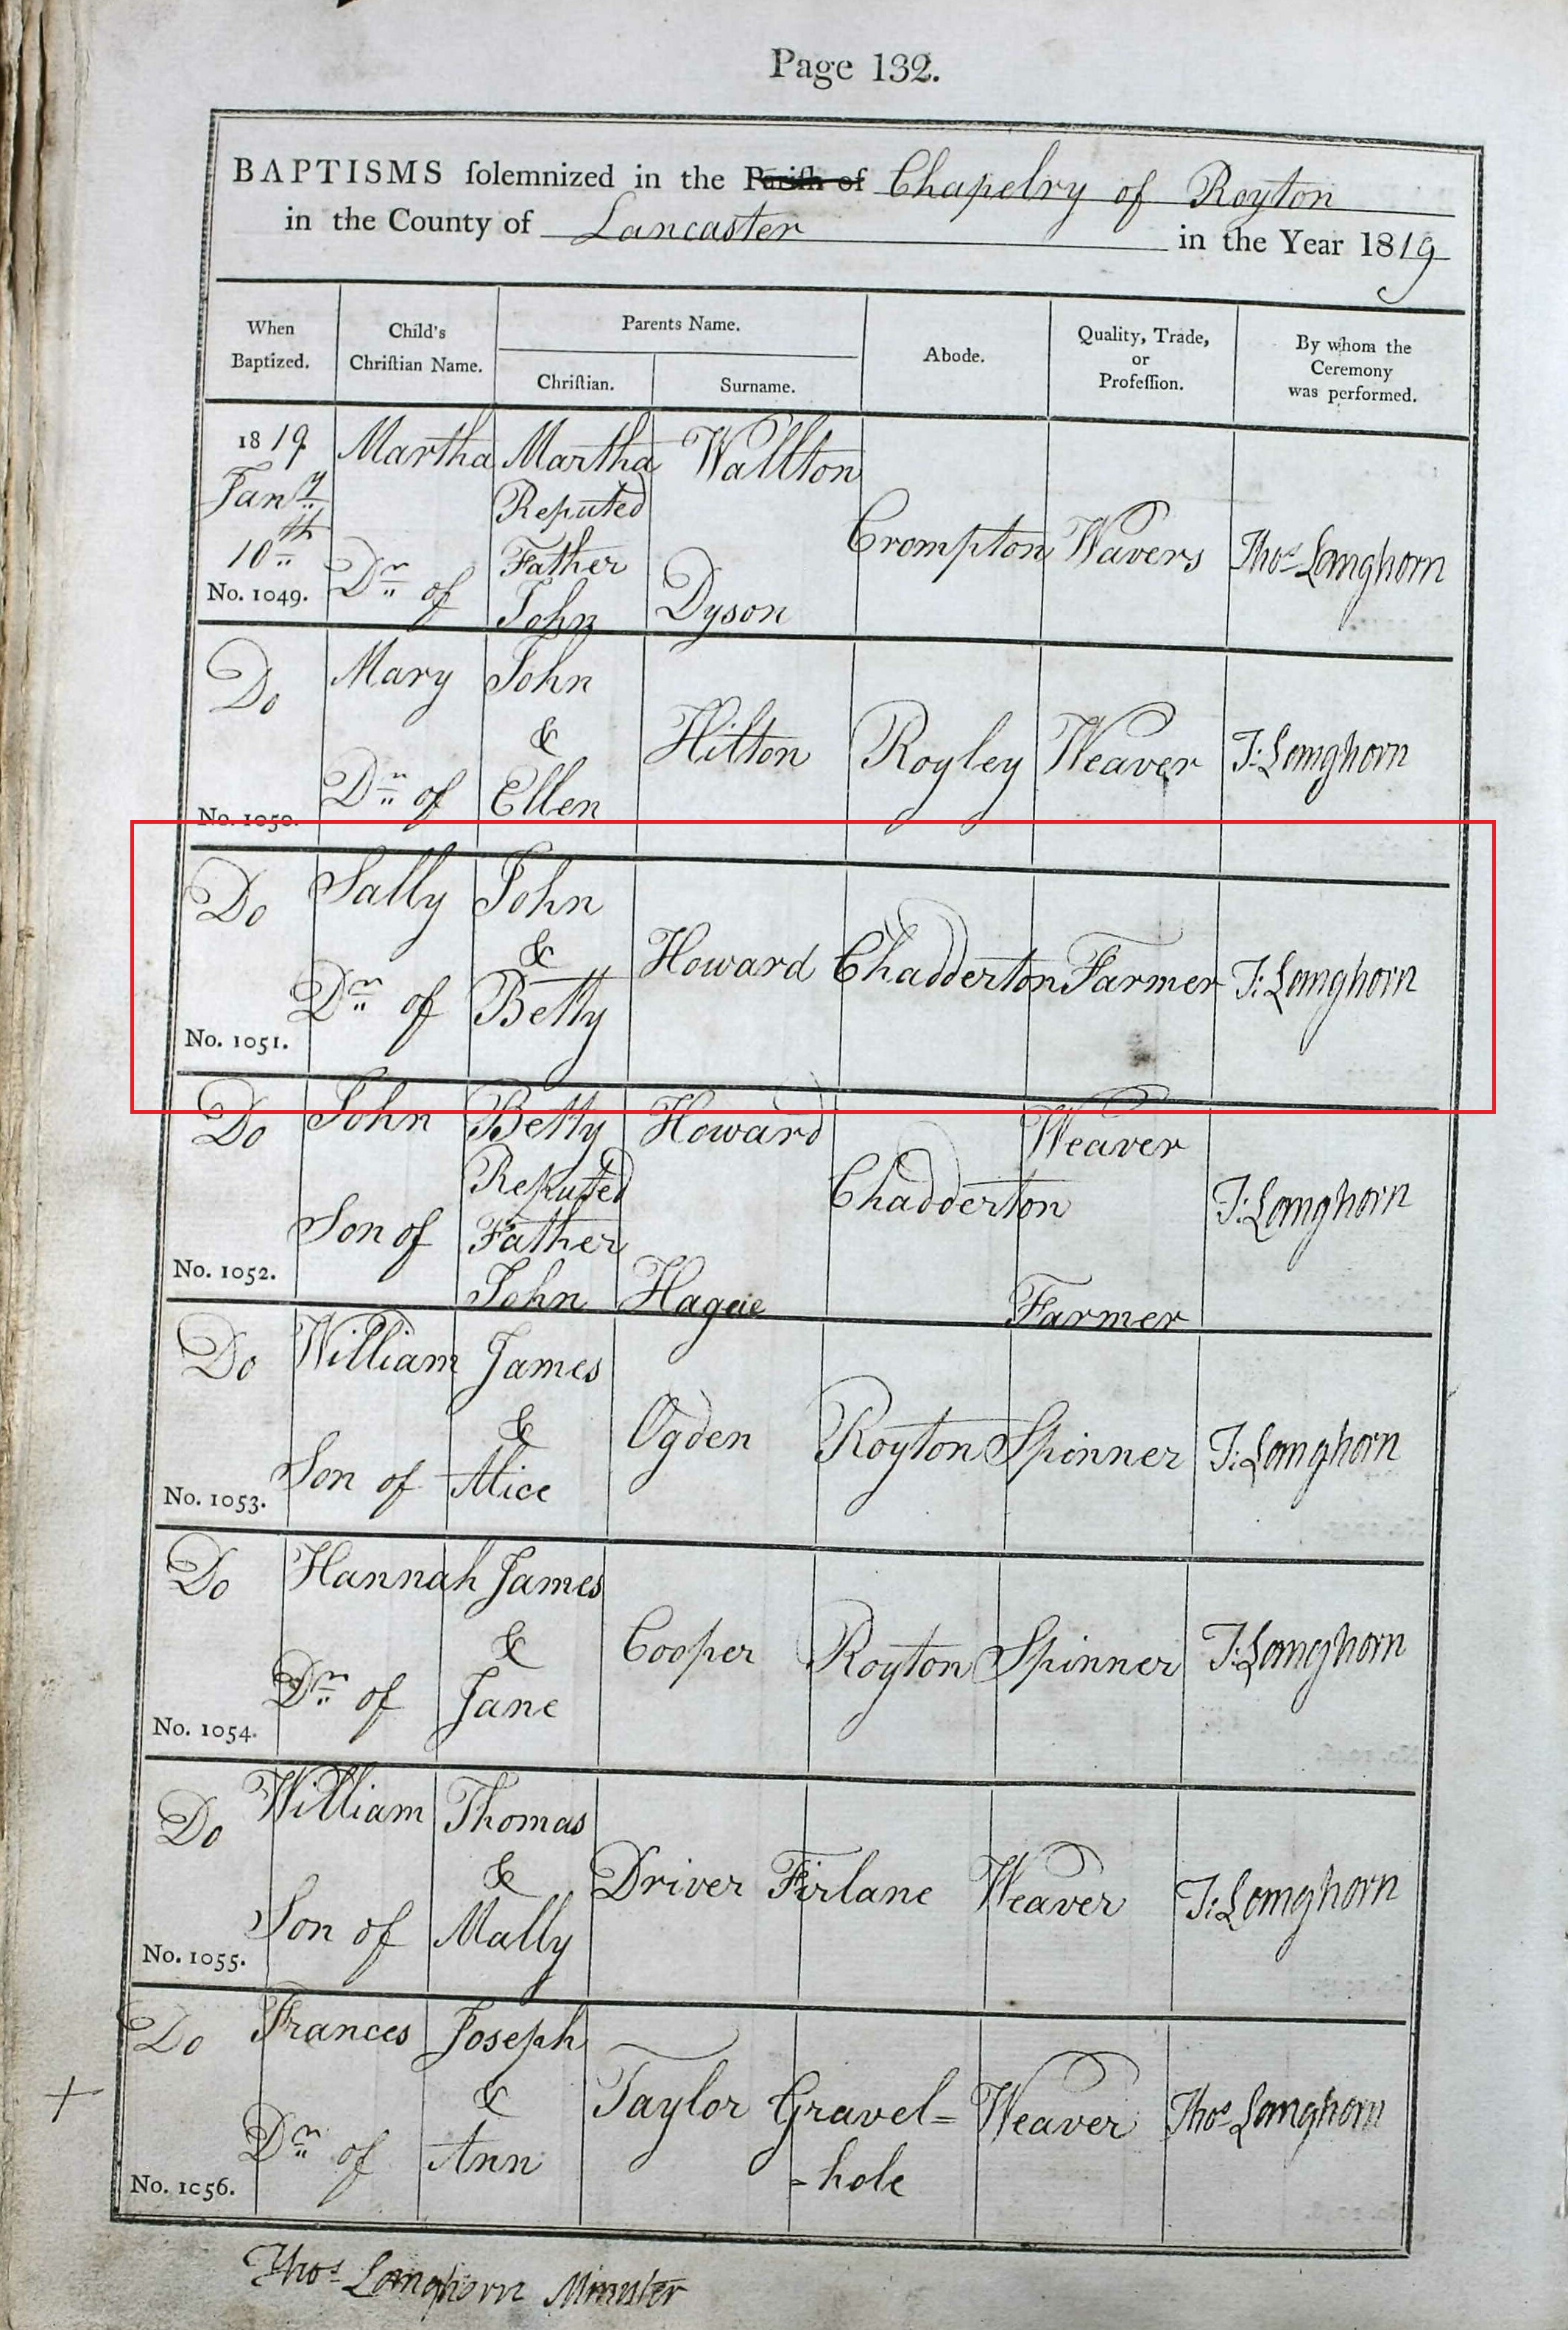 Page 132.
BAPTISMS solemnized in the Parish of Chapelry of Royton
in the County of Lancaster in the Year 1819
When Baptized.
Child's Christian Name.
Parents Name.
Christian.
Surname.
Abode.
Quality, Trade, or Profession.
By whom the Ceremony was performed.
1819
Jany
10th
No. 1049.
Martha
Dr of
Martha
Reputed
Father
John
Wallton
Dyson
Crompton
Wavers
Thos Longhorn
Do
No. 1050.
Mary
Dr of
John
&
Ellen
Hilton
Royley
Weaver
T: Longhorn
Do
No. 1051.
Sally
Dr of
John
&
Betty
Howard
Chadderton
Farmer
T: Longhorn
Do
No. 1052.
John
Son of
Betty
Reputed
Father
John
Howard
Hague
Chadderton
Weaver
Farmer
T: Longhorn
Do
No. 1053.
William
Son of
James
&
Alice
Ogden
Royton
Spinner
T: Longhorn
Do
No. 1054.
Hannah
Dr of
James
&
Jane
Cooper
Royton
Spinner
T: Longhorn
Do
No. 1055.
William
Son of
Thomas
&
Mally
Driver
Firlane
Weaver
T: Longhorn
Do
No. 1056.
Frances
Dr of
Joseph
&
Ann
Taylor
Gravel=
-hole
Weaver
Thos Longhorn
Thos Longhorn Minister